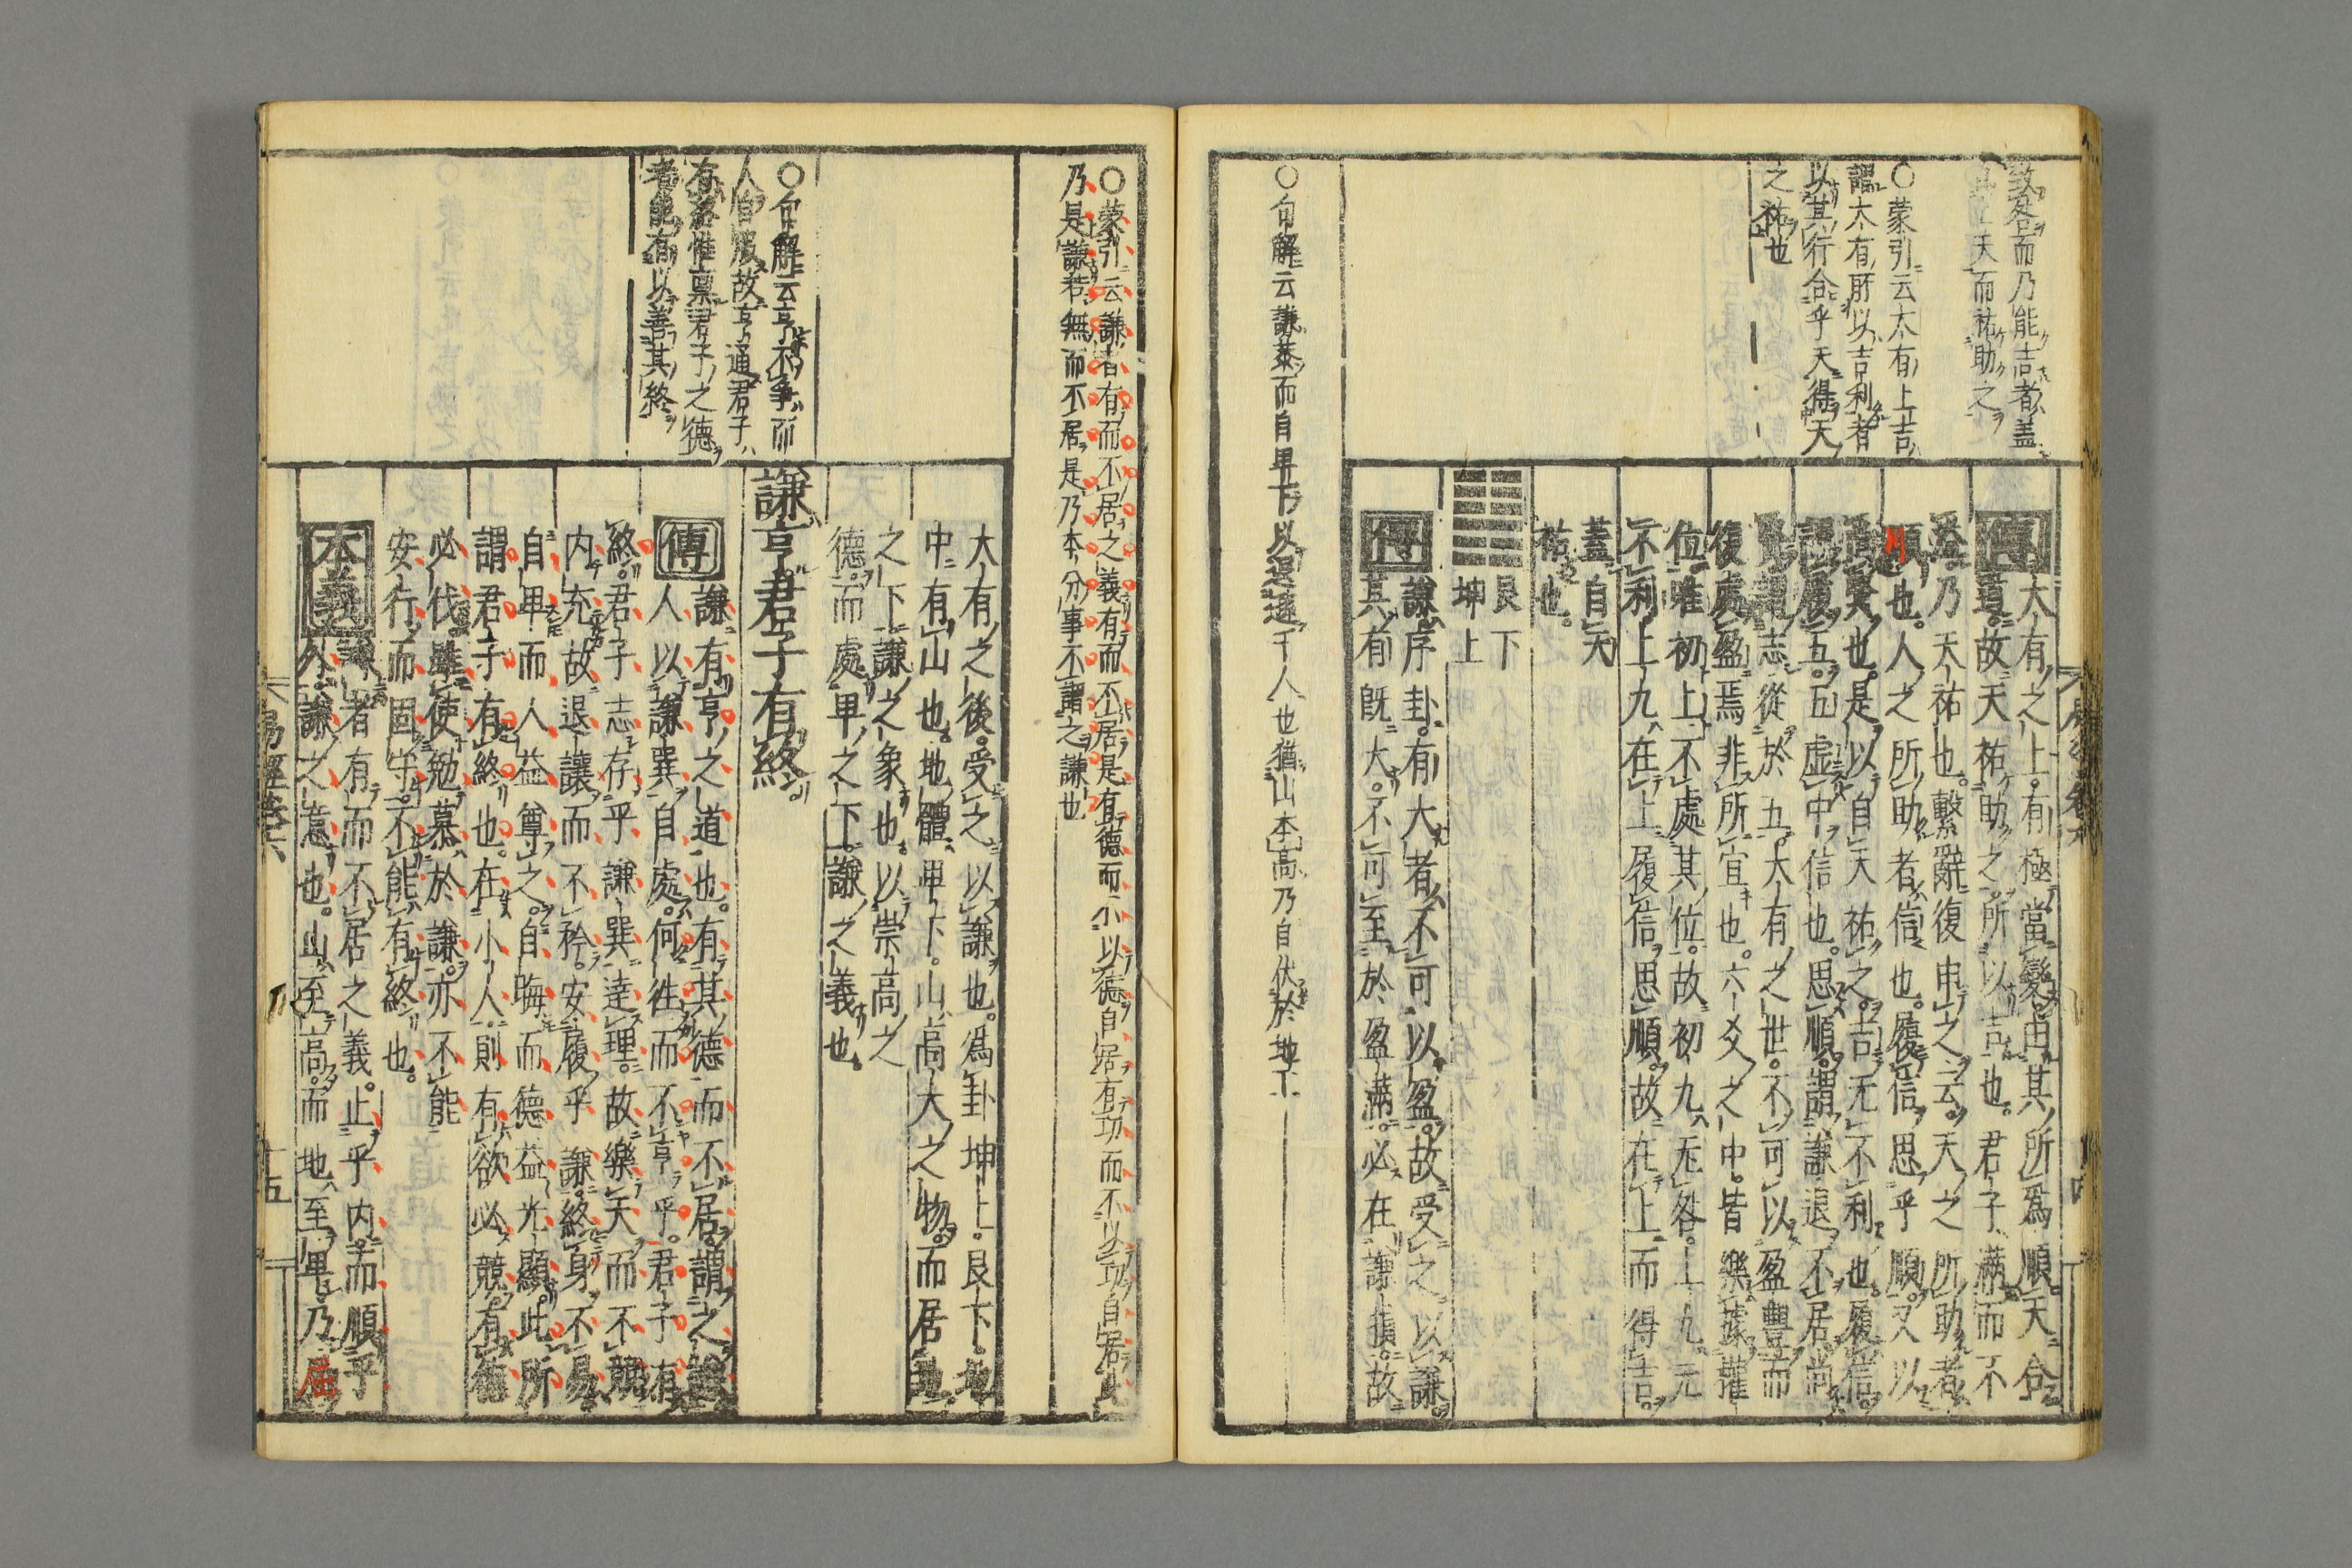 致咎而乃能吉者蓋
天而祐助之
○蒙引云大有上吉
謂大有所以吉利者
以其行合乎天得天
之祐也
傳大有之上有極當變由其所爲順天合
道故天祐助之所以吉也君子滿而不
溢乃天祐也繫辭復申之云天之所助者
順也人之所助者信也履信思乎順又以
尚賢也是以自天祐之吉无不利也履信
謂履五五虛中信也思順謂謙退不居尚
賢謂志從於五大有之世不可以盈豐而
復處盈焉非所宜也六爻之中皆樂據權
位唯初上不處其位故初九无咎上九无
不利上九在上履信思順故在上而得吉
蓋自天
祐也
艮下
坤上
傳謙序卦有大者不可以盈故受之以謙
其有旣大不可至於盈滿必在謙損故
○句解云謙恭而自卑下以遜於人也猶山本高乃自伏於地下
○蒙引云謙者有而不居之義有而不居是有德而不以德自居有功而不以功自居
乃是謙若無而不居是乃本分事不謂之謙也
大有之後受之以謙也爲卦坤上艮下地
中有山也地體卑下山高大之物而居地
之下謙之象也以崇高之
德而處卑之下謙之義也
○句解云亨不爭而
人自服故亨通君子
有終惟稟君子之德
者能有以善其終
謙亨君子有終
傳謙有亨之道也有其德而不居謂之謙
人以謙巽自處何往而不亨乎君子有
終君子志存乎謙巽達理故樂天而不競
内充故退讓而不矜安履乎謙終身不易
自卑而人益尊之自晦而德益光顯此所
謂君子有終也在小人則有欲必競有德
必伐雖使勉慕於謙亦不能
安行而固守不能有終也
本義謙者有而不居之義止乎内而順乎
外謙之意也山至高而地至卑乃屈
易經卷六
五